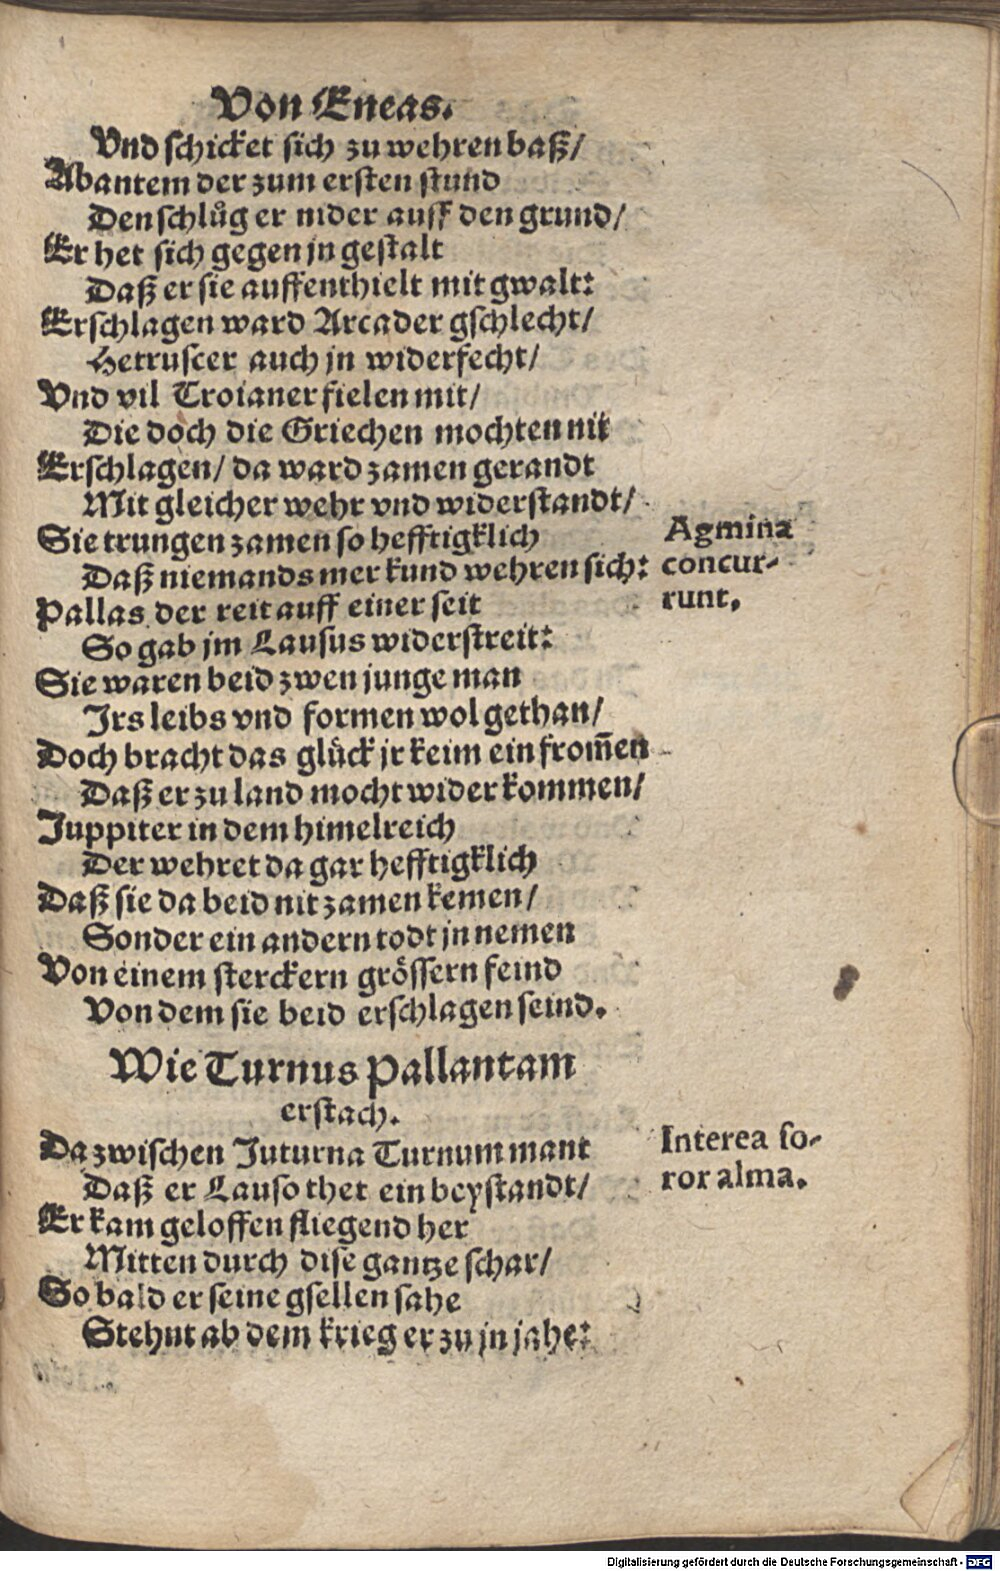 Von Eneas.
Vnd schicket sich zu wehren baß/
Abantem der zum ersten stund
Den schlůg er nider auff den grund/
Er het sich gegen jn gestalt
Daß er sie auffenthielt mit gwalt:
Erschlagen ward Arcader gschlecht/
Hetruscer auch jn widerfecht/
Vnd vil Troianer fielen mit/
Die doch die Griechen mochten nit
Erschlagen/ da ward zamen gerandt
Mit gleicher wehr vnd widerstandt/
Sie trungen zamen so hefftigklich
Agmina
Daß niemands mer kund wehren sich:
concur-
Pallas der reit auff einer seit
runt.
So gab jm Lausus widerstreit:
Sie waren beid zwen junge man
Irs leibs vnd formen wol gethan/
Doch bracht das glück jr keim ein from̄en
Daß er zu land mocht wider kommen/
Juppiter in dem himelreich
Der wehret da gar hefftigklich
Daß sie da beid nit zamen kemen/
Sonder ein andern todt jn nemen
Von einem sterckern grössern feind
Von dem sie beid erschlagen seind.
Wie Turnus Pallantam
erstach.
Da zwischen Juturna Turnum mant
Interea so-
Daß er Lauso thet ein beystandt/
ror alma.
Er kam geloffen fliegend her
Mitten durch dise gantze schar/
So bald er seine gsellen sahe
Stehnt ab dem krieg er zu jn jahe:
Digitalisierung gefördert durch die Deutsche Forschungsgemeinschaft - DFG